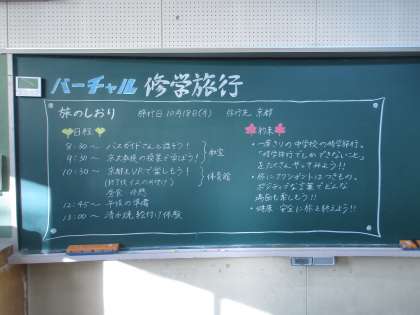 バーチャル 修学旅行
旅のしおり 旅行日 10月18日(月) 旅行先 京都
日程
8:30〜 バスガイドさんと話そう!
9:30〜 京大教授の授業で学ぼう!
教室
10:30〜 京都をVRで楽しもう!
体育館
昼食 休憩
12:45〜 午後の準備
13:00〜 清水焼絵付け体験
約束
・一度きりの中学校の修学旅行。
「修学旅行でしかできないこと」
をたくさんやってみよう!!
・旅にアクシデントはつきもの。
ポジティブな言葉でどんな
場面も楽しもう!!
・健康 安全に旅を終えよう!!